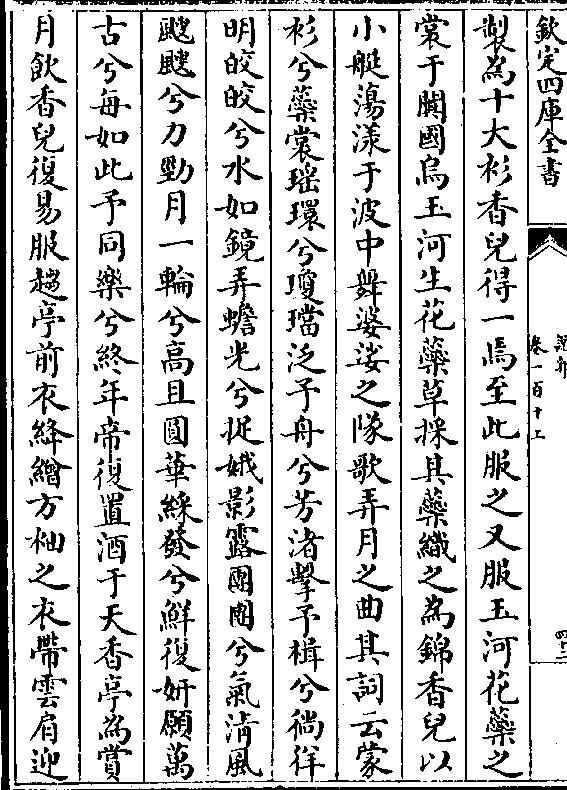 欽定四庫全書
說郛
卷一百十上
四十二
製為十大衫香兒得一焉至此服之又服玉河花蘂之
裳于闐國烏玉河生花蘂草採其蘂織之為錦香兒以
小艇蕩漾于波中舞婆娑之隊歌弄月之曲其詞云蒙
衫兮蘂裳瑶環兮瓊璫泛予舟兮芳渚擊予楫兮徜徉
明皎皎兮水如鏡弄蟾光兮捉娥影露團團兮氣清風
颼颼兮力勁月一輪兮高且圓華綵發兮鮮復妍願萬
古兮每如此予同樂兮終年帝復置酒于天香亭為賞
月飲香兒復易服趨亭前衣絳繒方袖之衣帶雲肩迎